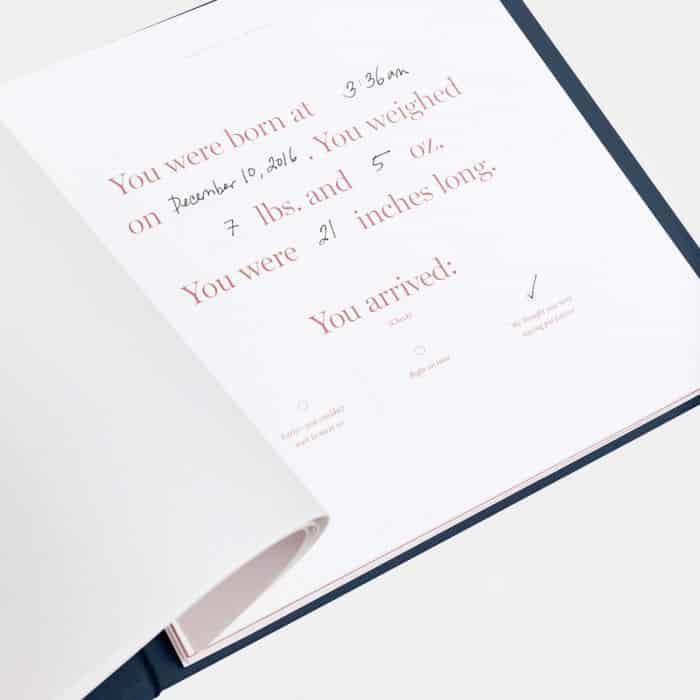 You were born at 3:36am
on December 10, 2016 . You weighed
7 lbs. and 5 oz.
You were 21 inches long.
You arrived:
(Check)
✓
We thought you were
staying put forever
Right on time
Early—you couldn't
wait to meet us